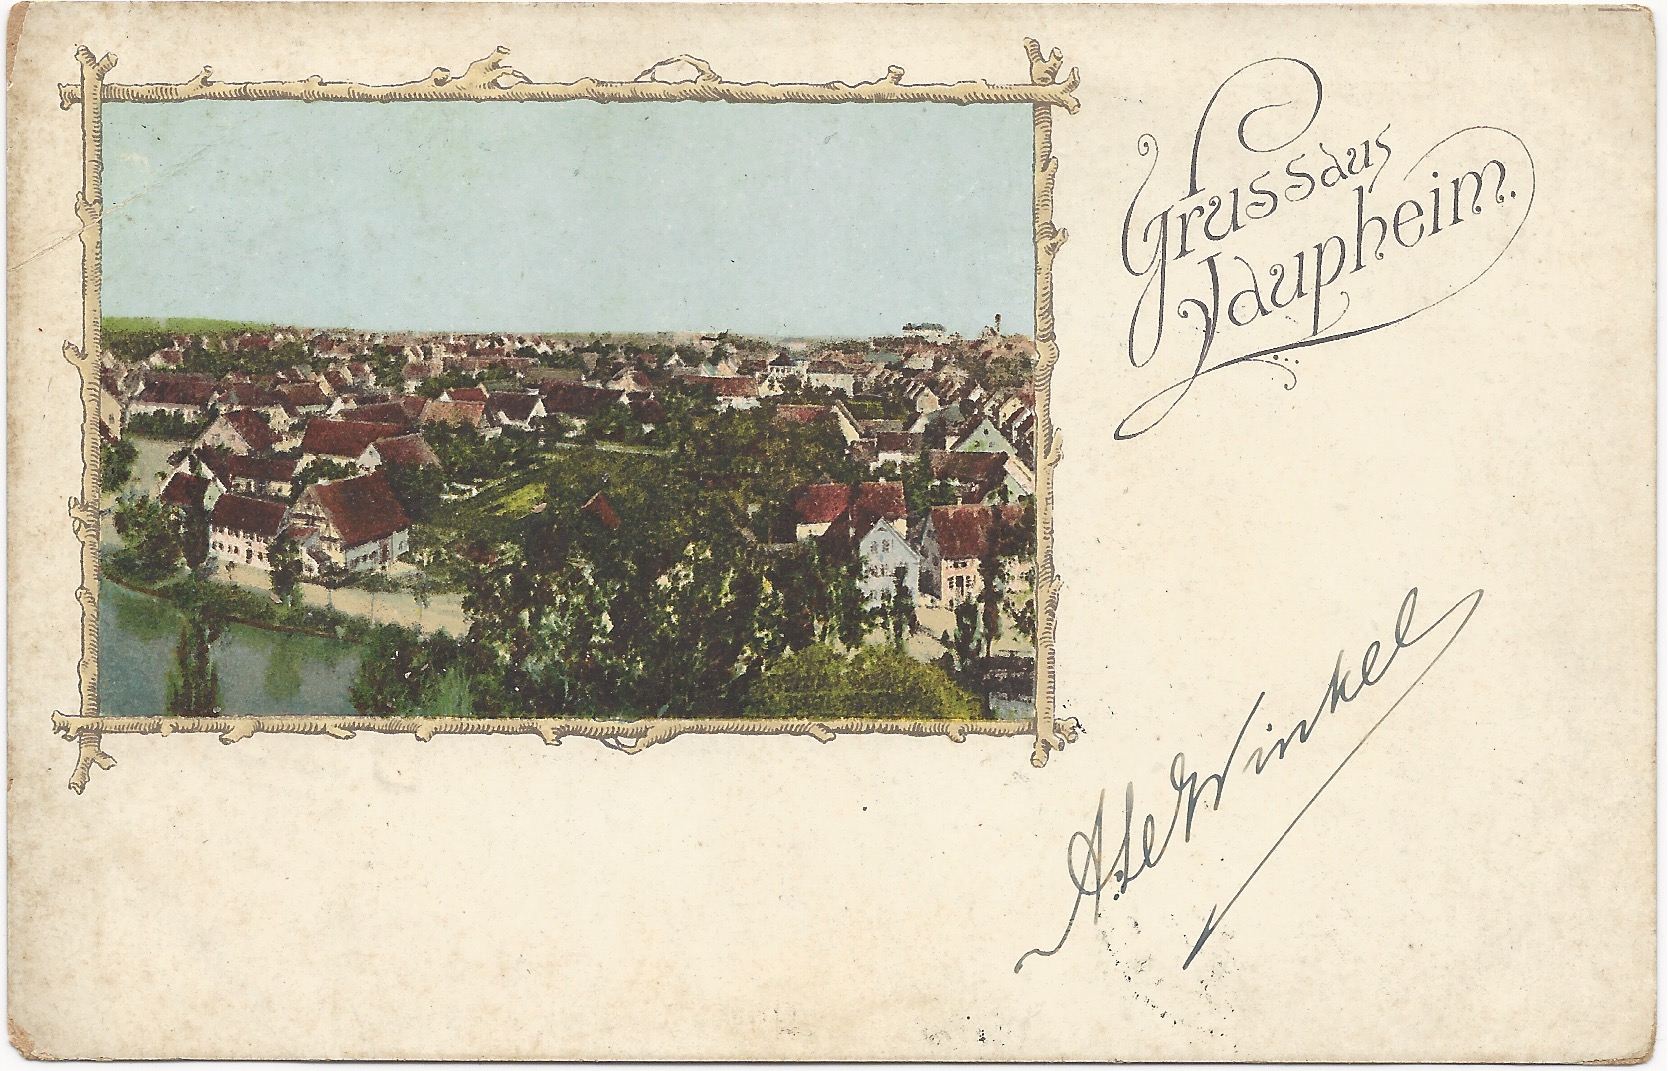 Gruss aus
Laupheim.
A. Le Winkel